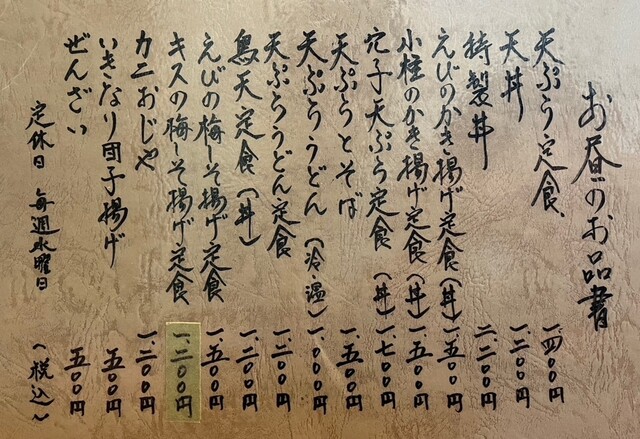 お昼のお品書
天ぷら定食 一、四〇〇円
天丼 一、二〇〇円
特製丼 二、二〇〇円
えびのかき揚げ定食(丼) 一、五〇〇円
小柱のかき揚げ定食(丼) 一、五〇〇円
穴子天ぷら定食(丼) 一、七〇〇円
天ぷらとそば 一、五〇〇円
天ぷらうどん(冷・温) 一、〇〇〇円
天ぷらうどん定食 一、二〇〇円
鳥天定食(丼) 一、二〇〇円
えびの梅しそ揚げ定食 一、五〇〇円
キスの梅しそ揚げ定食 一、二〇〇円
カニおじや 一、二〇〇円
いきなり団子揚げ 五〇〇円
ぜんざい 五〇〇円
定休日 毎週水曜日
(税込)